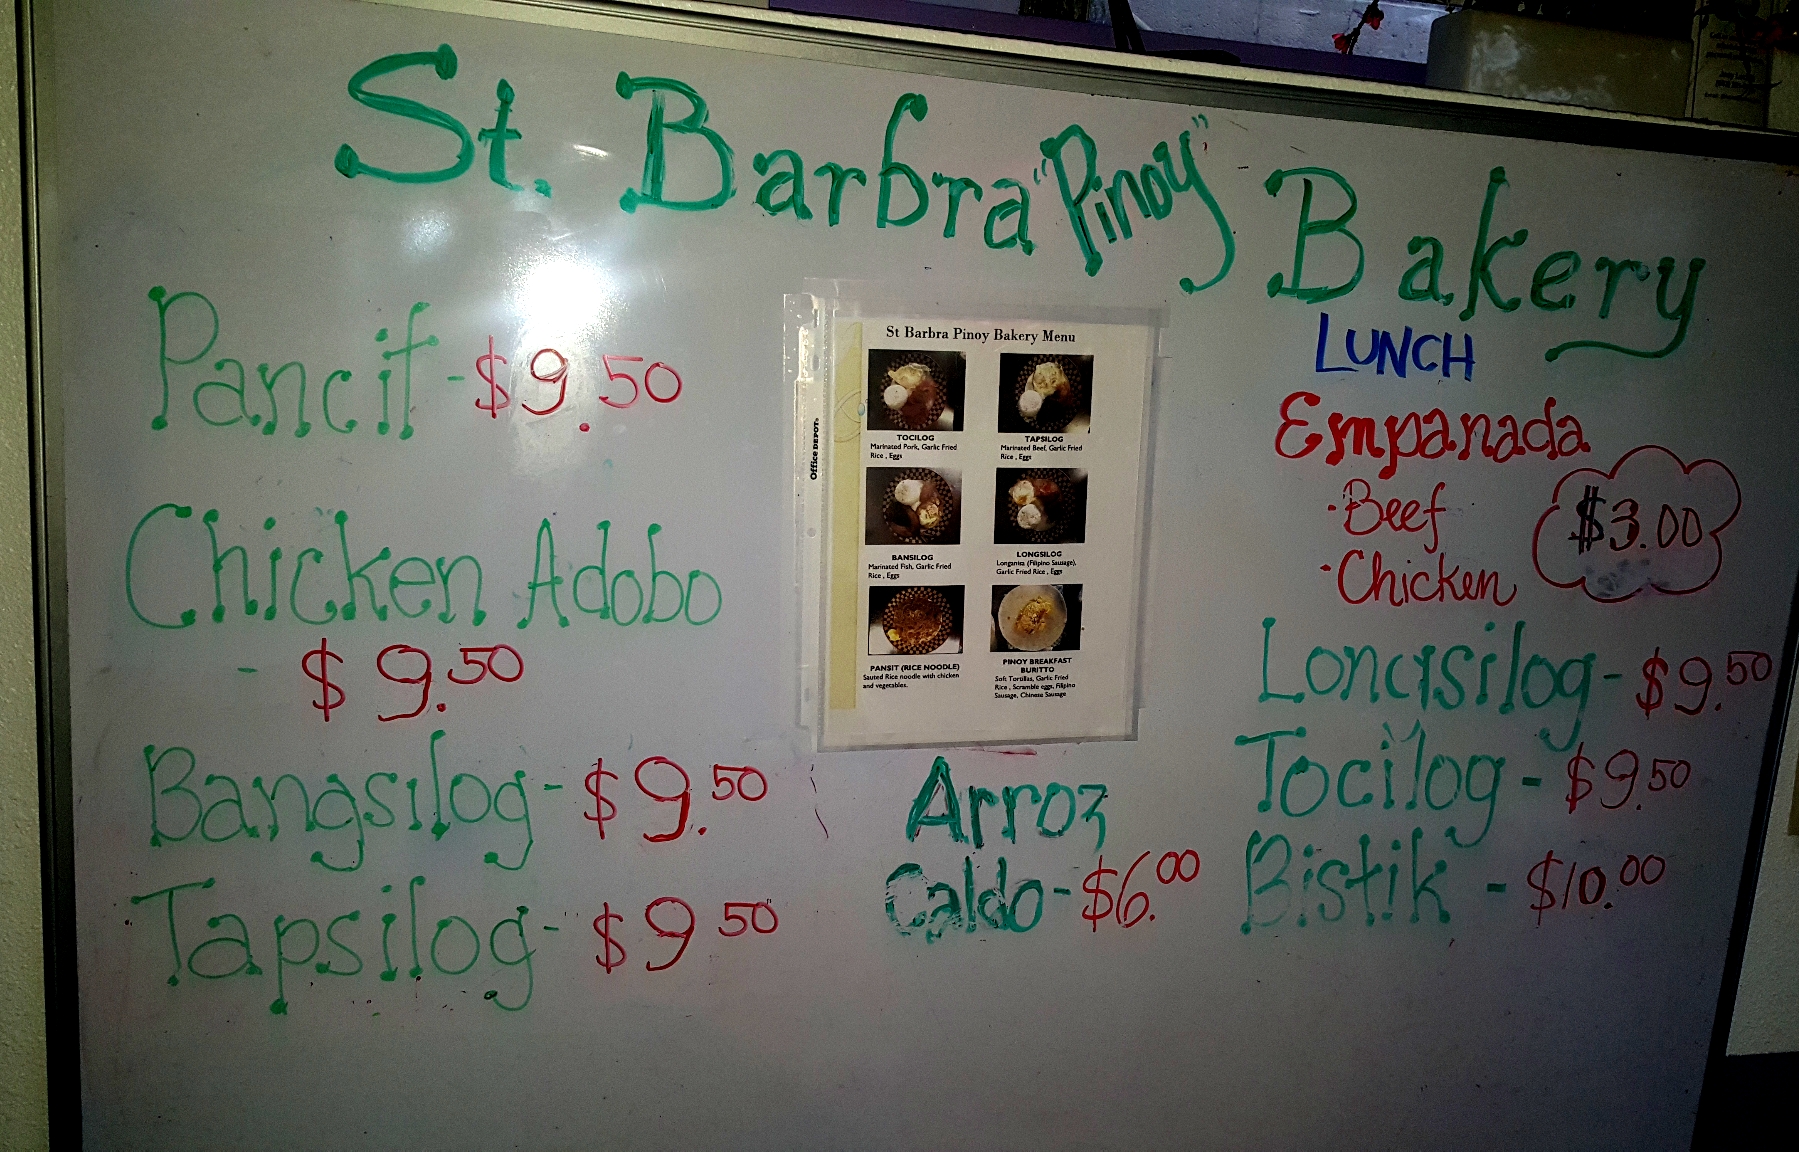 St. Barbra "Pinoy" Bakery
Pancit - $9.50
Chicken Adobo
- $9.50
Bangsilog - $9.50
Tapsilog - $9 50
Office DEPOT
St Barbra Pinoy Bakery Menu
TOCILOG
Marinated Pork, Garlic Fried
Rice , Eggs
TAPSILOG
Marinated Beef, Garlic Fried
Rice , Eggs
BANSILOG
Marinated Fish, Garlic Fried
Rice , Eggs
LONGSILOG
Longanisa (Filipino Sausage),
Garlic Fried Rice , Eggs
PANSIT (RICE NOODLE)
Sauted Rice noodle with chicken
and vegetables.
PINOY BREAKFAST
BURITTO
Soft Tortillas, Garlic Fried
Rice , Scramble eggs, Filipino
Sausage, Chinese Sausage
Arroz
Caldo - $6.00
LUNCH
Empanada
· Beef
· Chicken
$3.00
Longsilog - $9.50
Tocilog - $9.50
Bistik - $10.00